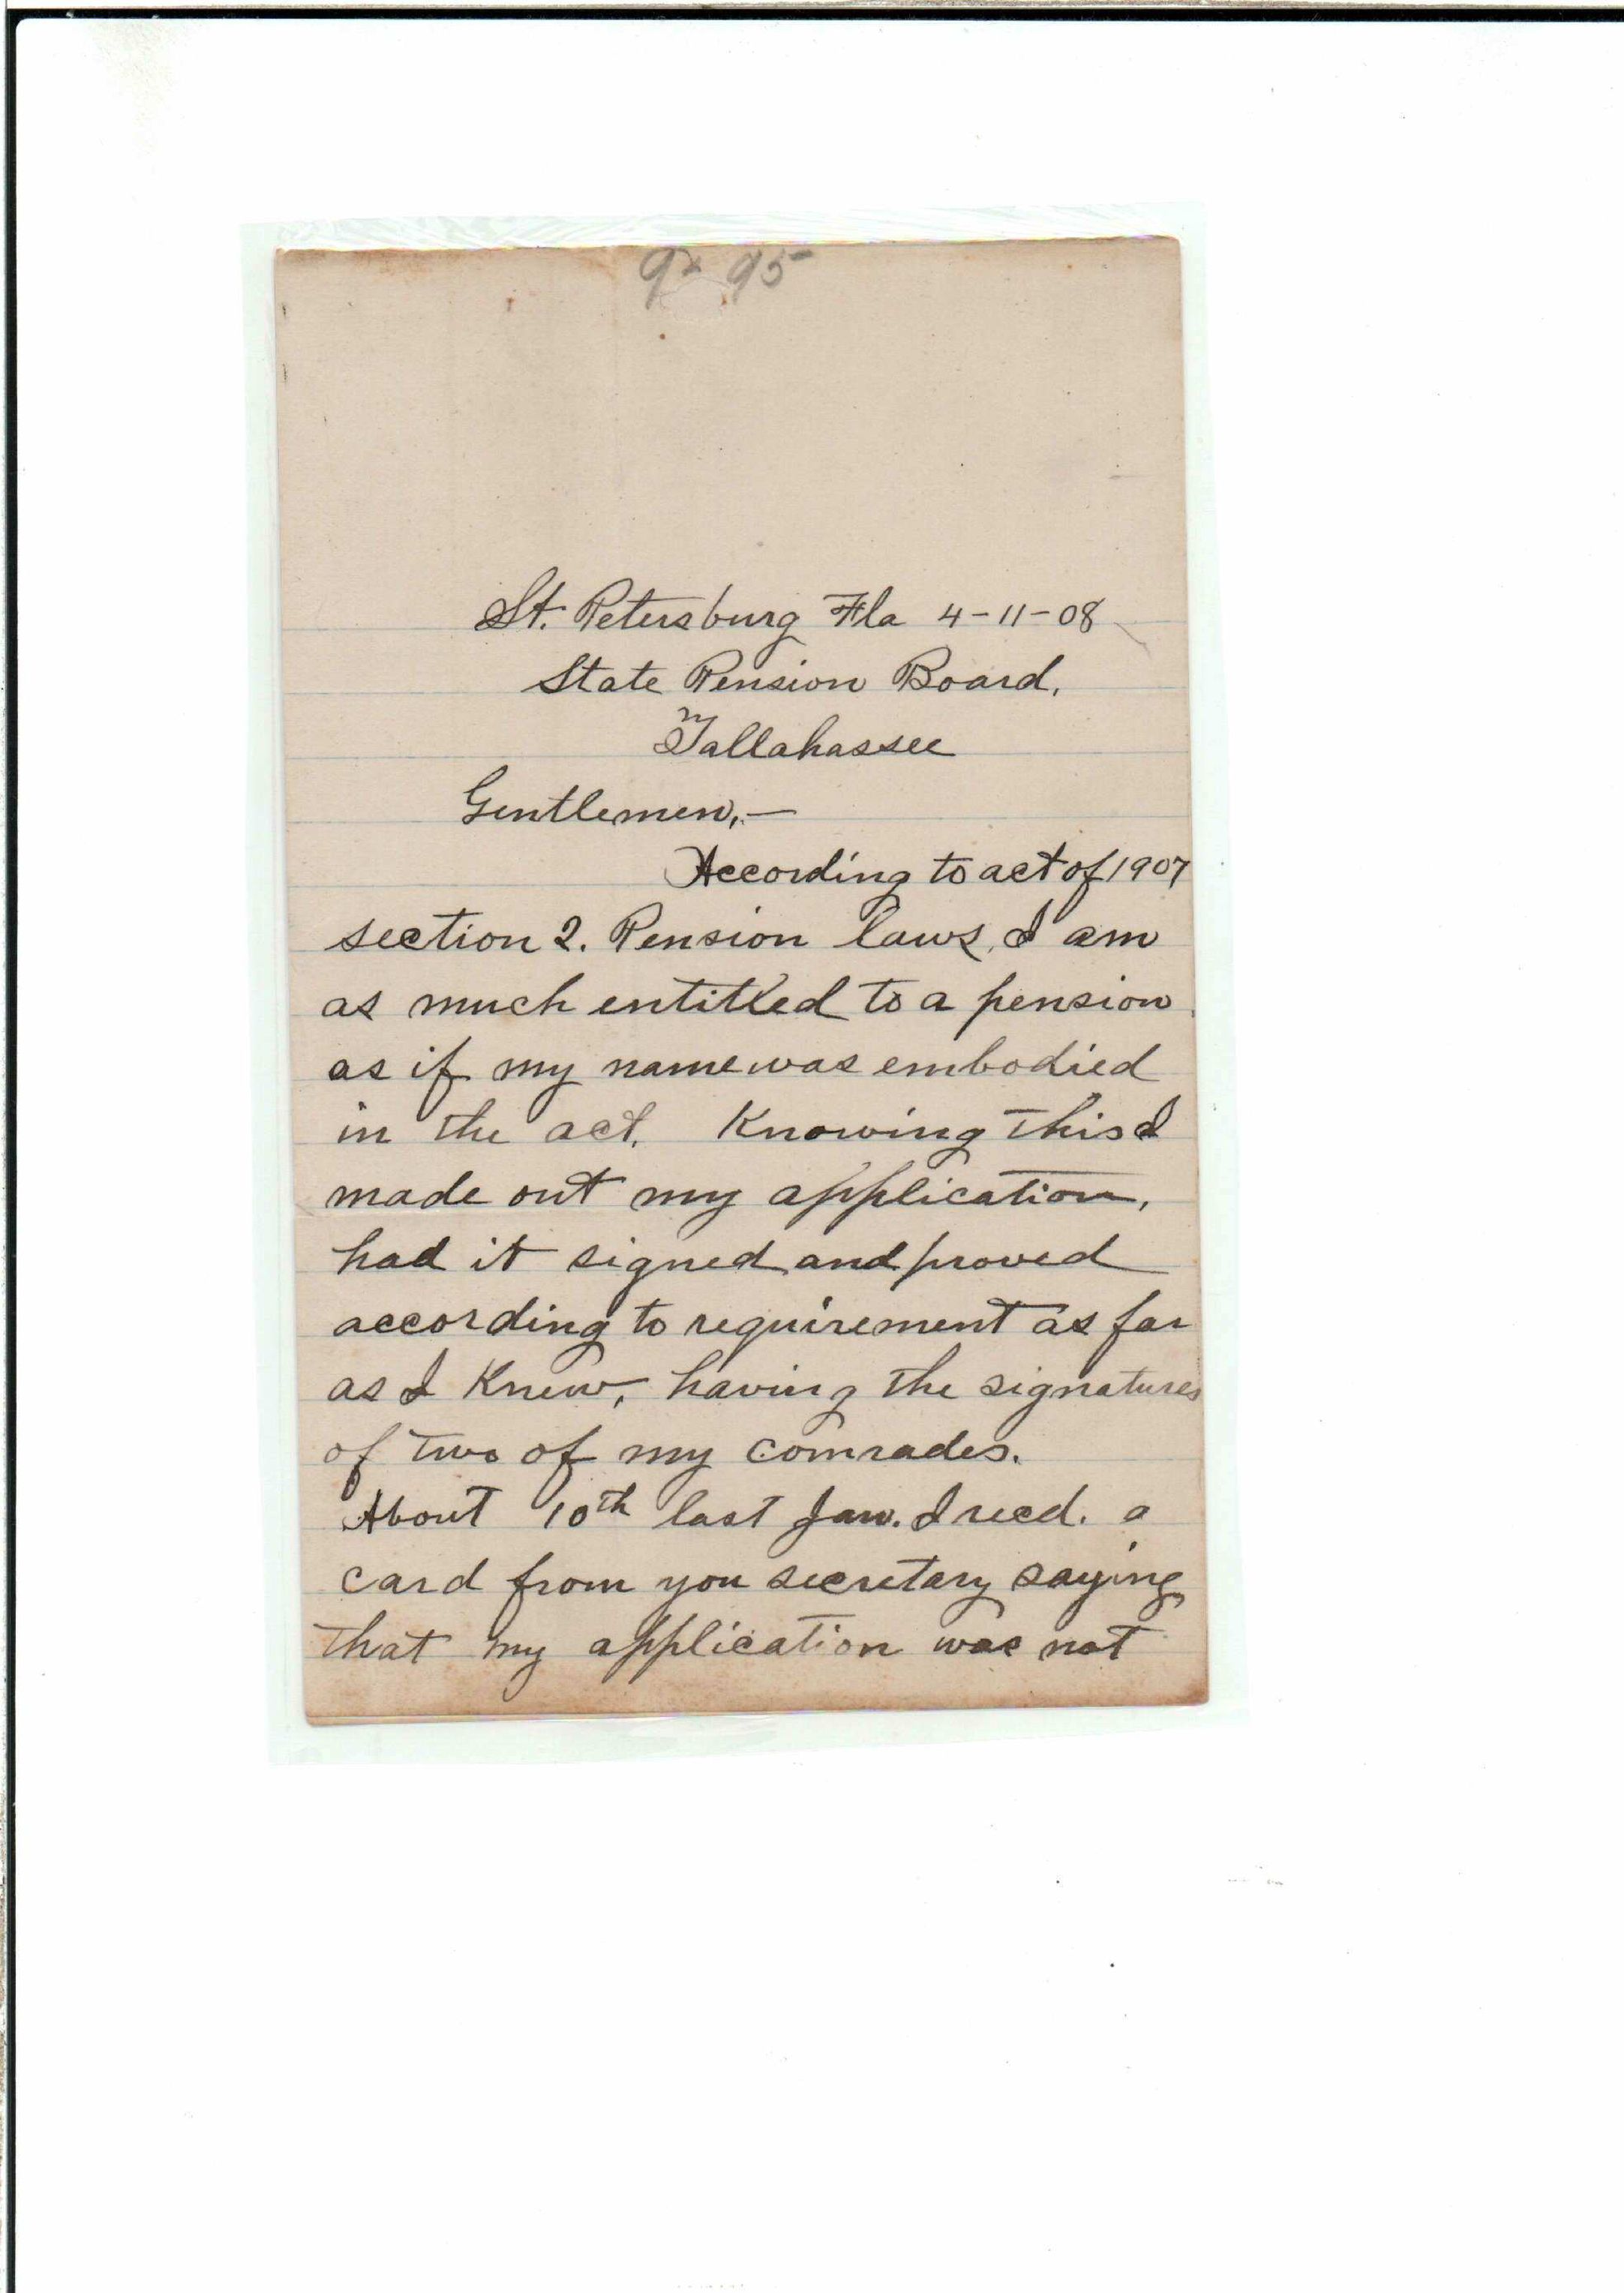 St. Petersburg Fla 4-11-08
State Pension Board,
Tallahassee
Gentlemen,—
According to act of 1907
section 2. Pension laws, I am
as much entitled to a pension
as if my name was embodied
in the act. Knowing this I
made out my application,
had it signed and proved
according to requirement as far
as I Knew, having the signatures
of two of my comrades.
About 10th last Jan. I recd. a
card from you secretary saying
that my application was not